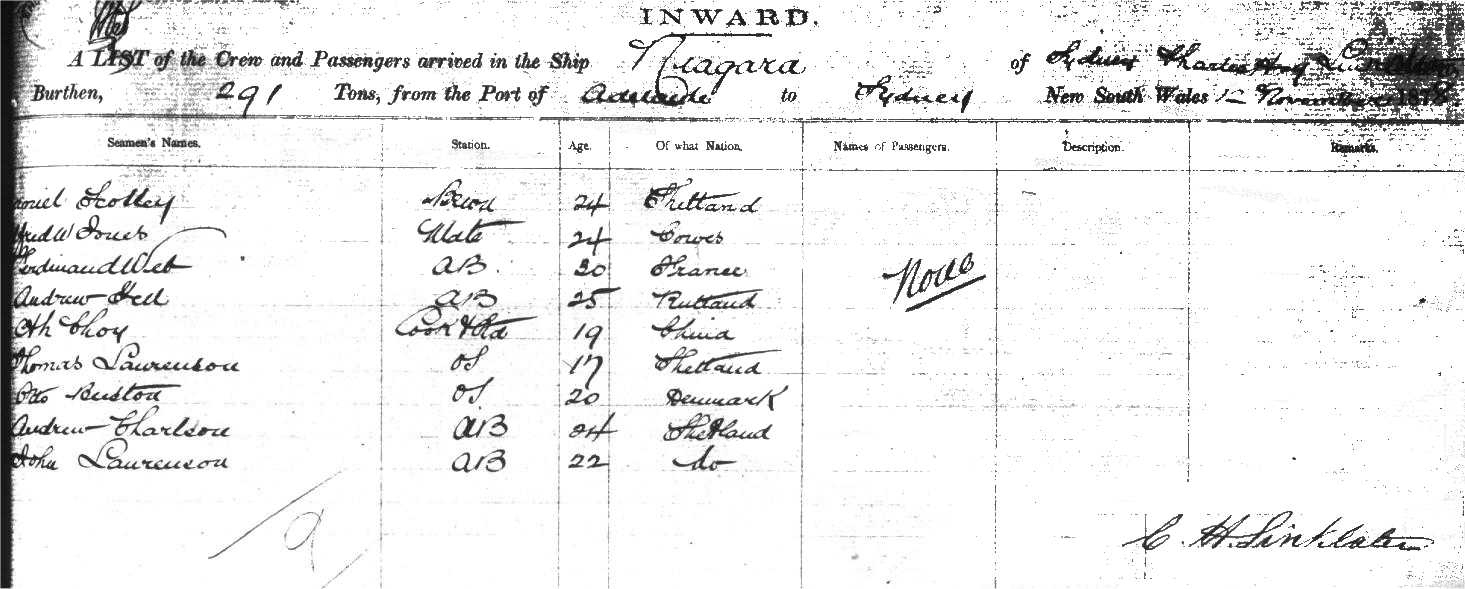 INWARD.
A LIST of the Crew and Passengers arrived in the Ship Niagara of Sydney Charles Hay
Burthen, 291 Tons, from the Port of Adelaide to Sydney New South Wales 12 November 187
Seamen's Names. Station. Age. Of what Nation. Names of Passengers. Description. Remarks.
Scolley 24 Shetland
W Jones Mate 24 Cowes
Ferdinand Web AB 20 France None
Andrew AB 25 Rutland
Ah Choy Cook & Std 19 China
Thomas Laurenson OS 17 Shetland
Otto Buston OS 20 Denmark
Andrew Charlson AB 24 Shetland
John Laurenson AB 22 do
C. H. Sinklater